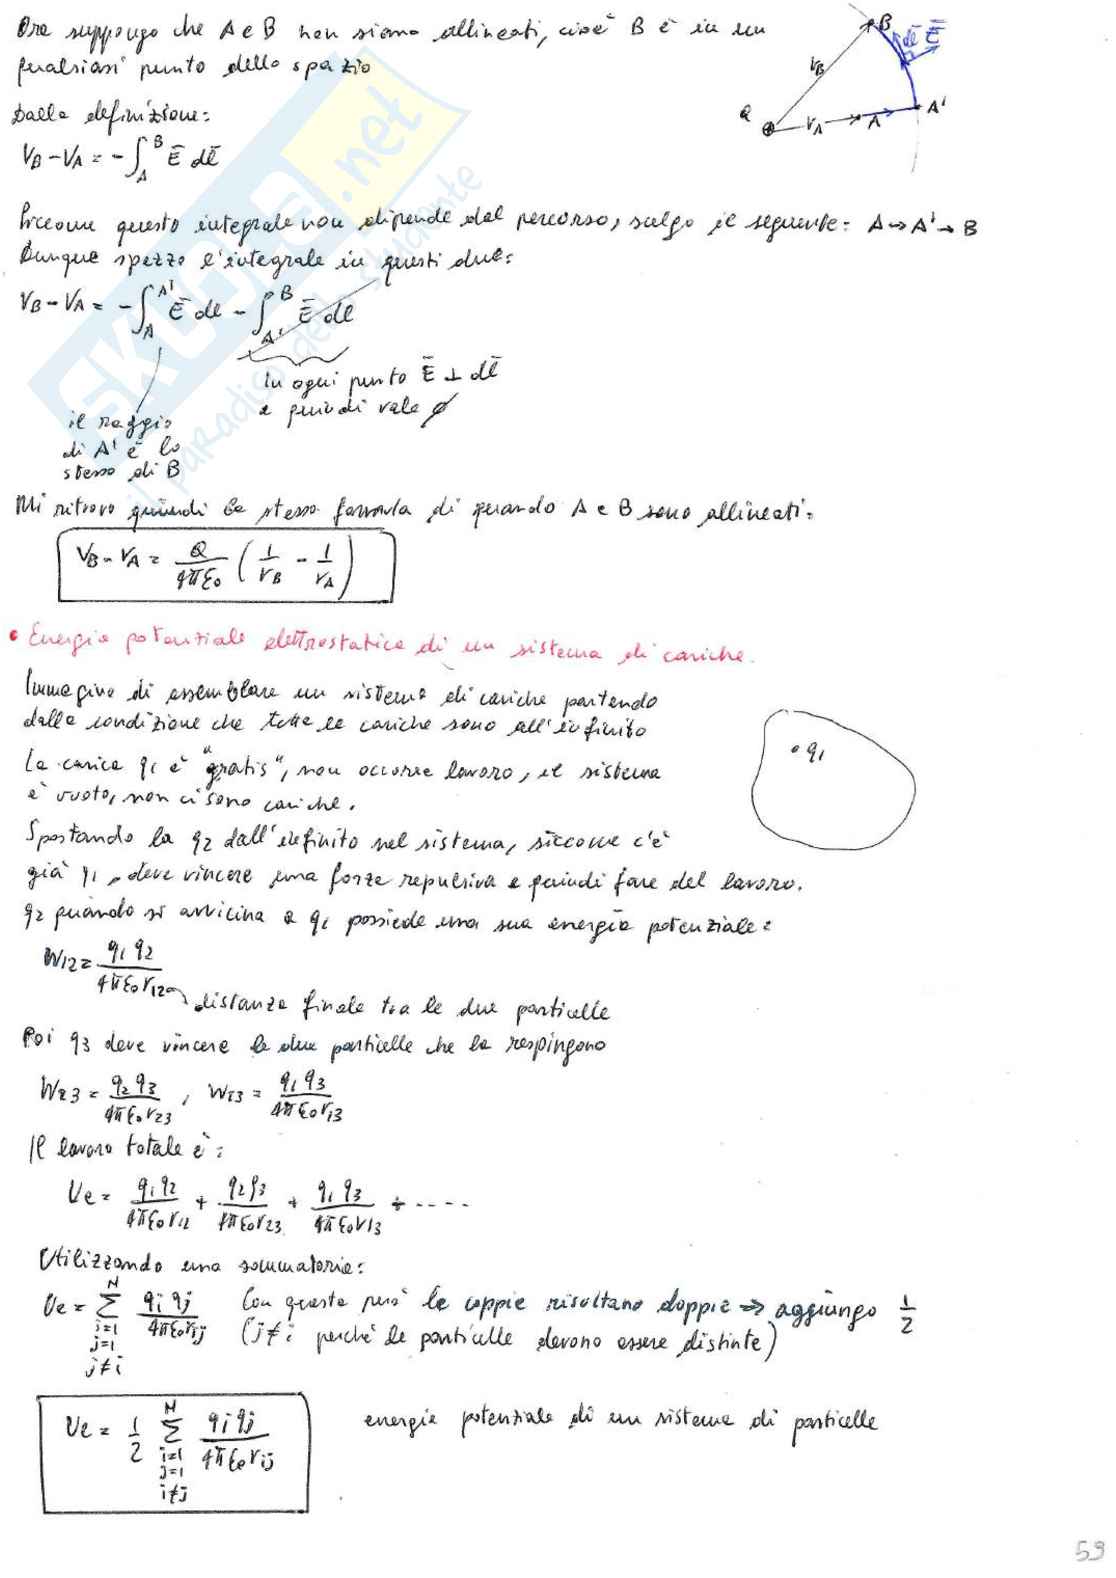 Ora suppongo che A e B non siano allineati, cioè B è in un
qualsiasi punto dello spazio
Dalla definizione:
V_B - V_A = - ∫_A^B Ē dl̄
Q
r_A
r_B
A
A'
B
dl̄
Ē
Siccome questo integrale non dipende dal percorso, scelgo il seguente: A → A' → B
Dunque spezzo l'integrale in questi due:
V_B - V_A = - ∫_A^A' Ē dl - ∫_A'^B Ē dl
In ogni punto Ē ⊥ dl̄
e quindi vale ∅
il raggio
di A' è lo
stesso di B
Mi ritrovo quindi la stessa formula di quando A e B sono allineati:
V_B - V_A = Q/4πε₀ (1/r_B - 1/r_A)
• Energia potenziale elettrostatica di un sistema di cariche.
Immagino di assemblare un sistema di cariche partendo
dalla condizione che tutte le cariche sono all'infinito
La carica q₁ è "gratis", non occorre lavoro, il sistema
è vuoto, non ci sono cariche.
• q₁
Spostando la q₂ dall'infinito nel sistema, siccome c'è
già q₁, deve vincere una forza repulsiva e quindi fare del lavoro.
q₂ quando si avvicina a q₁ possiede una sua energia potenziale:
W₁₂ = q₁ q₂ / 4πε₀r₁₂
distanza finale tra le due particelle
Poi q₃ deve vincere le due particelle che la respingono
W₂₃ = q₂ q₃ / 4πε₀r₂₃ , W₁₃ = q₁ q₃ / 4πε₀r₁₃
Il lavoro totale è:
Ue = q₁q₂ / 4πε₀r₁₂ + q₂q₃ / 4πε₀r₂₃ + q₁q₃ / 4πε₀r₁₃ + ....
Utilizzando una sommatoria:
Ue = Σ^N_{i=1 j=1 j≠i} qi qj / 4πε₀rij Con questa però le coppie risultano doppie ⇒ aggiungo 1/2
(j≠i perché le particelle devono essere distinte)
Ue = 1/2 Σ^N_{i=1 j=1 i≠j} qi qj / 4πε₀rij energia potenziale di un sistema di particelle
59
SKUOLA.net
il paradiso dello studente